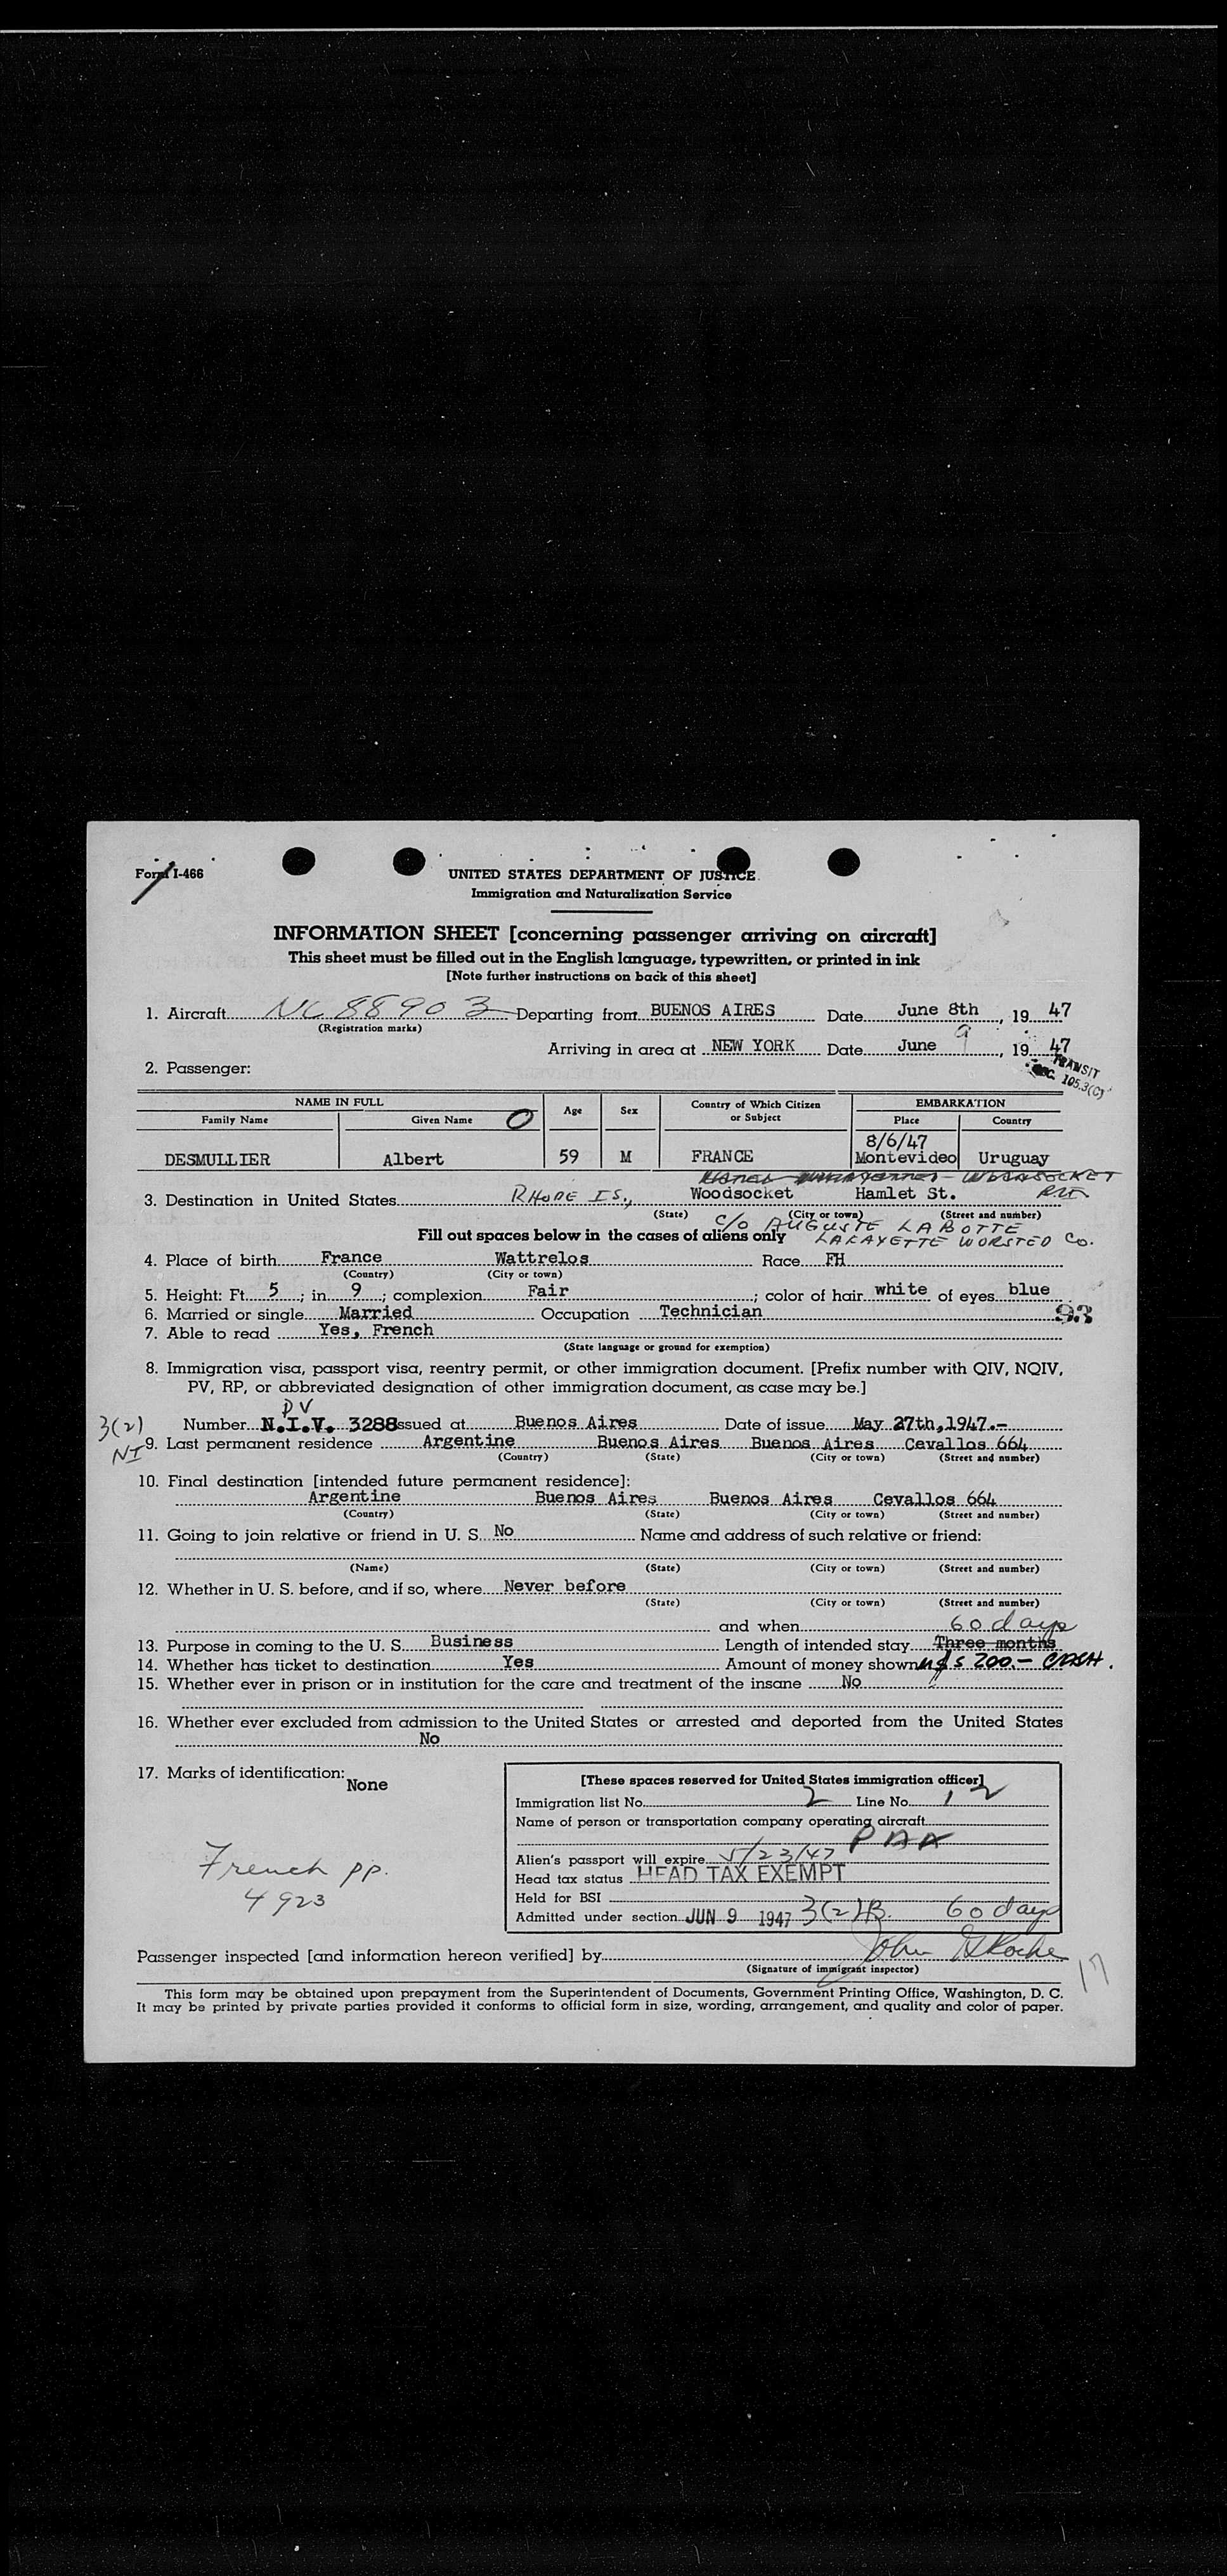 Form I-466
UNITED STATES DEPARTMENT OF JUSTICE
Immigration and Naturalization Service
INFORMATION SHEET [concerning passenger arriving on aircraft]
This sheet must be filled out in the English language, typewritten, or printed in ink
[Note further instructions on back of this sheet]
1. Aircraft NC 88903 Departing from BUENOS AIRES Date June 8th, 1947
(Registration marks)
Arriving in area at NEW YORK Date June 9, 1947
2. Passenger:
TRANSIT
SEC. 105.3(C)
NAME IN FULL Age Sex Country of Which Citizen or Subject EMBARKATION
Family Name Given Name O Place Country
8/6/47
DESMULLIER Albert 59 M FRANCE Montevideo Uruguay
WOONSOCKET
3. Destination in United States RHODE IS., Woodsocket Hamlet St.
(State) (City or town) (Street and number)
c/o AUGUSTE LABOTTE
Fill out spaces below in the cases of aliens only LAFAYETTE WORSTED Co.
4. Place of birth France Wattrelos Race FH
(Country) (City or town)
5. Height: Ft. 5; in. 9; complexion Fair; color of hair white of eyes blue
6. Married or single Married Occupation Technician 93
7. Able to read Yes, French
(State language or ground for exemption)
8. Immigration visa, passport visa, reentry permit, or other immigration document. [Prefix number with QIV, NQIV,
PV, RP, or abbreviated designation of other immigration document, as case may be.]
PV
3(2) Number N.I.V. 3288 issued at Buenos Aires Date of issue May 27th, 1947.-
NI 9. Last permanent residence Argentine Buenos Aires Buenos Aires Cevallos 664
(Country) (State) (City or town) (Street and number)
10. Final destination [intended future permanent residence]:
Argentine Buenos Aires Buenos Aires Cevallos 664
(Country) (State) (City or town) (Street and number)
11. Going to join relative or friend in U. S. No Name and address of such relative or friend:
(Name) (State) (City or town) (Street and number)
12. Whether in U. S. before, and if so, where Never before
(State) (City or town) (Street and number)
and when 60 days
13. Purpose in coming to the U. S. Business Length of intended stay Three months
14. Whether has ticket to destination Yes Amount of money shown u$s 200.- CASH.
15. Whether ever in prison or in institution for the care and treatment of the insane No
16. Whether ever excluded from admission to the United States or arrested and deported from the United States
No
17. Marks of identification: None
[These spaces reserved for United States immigration officer]
Immigration list No. 2 Line No. 12
Name of person or transportation company operating aircraft
PAA
Alien's passport will expire 5/23/47
Head tax status HEAD TAX EXEMPT
Held for BSI
Admitted under section JUN 9 1947 3(2)B. 60 days
French pp.
4923
Passenger inspected [and information hereon verified] by John Roche
(Signature of immigrant inspector)
17
This form may be obtained upon prepayment from the Superintendent of Documents, Government Printing Office, Washington, D. C.
It may be printed by private parties provided it conforms to official form in size, wording, arrangement, and quality and color of paper.